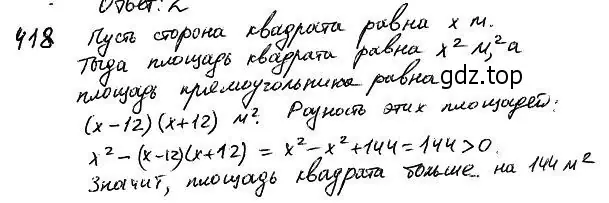 Ответ: 2
418 Пусть сторона квадрата равна x м.
Тогда площадь квадрата равна x² м², а
площадь прямоугольника равна
gdz.top
(x-12)(x+12) м². Разность этих площадей:
x²-(x-12)(x+12) = x²-x²+144=144>0.
Значит, площадь квадрата больше на 144 м²